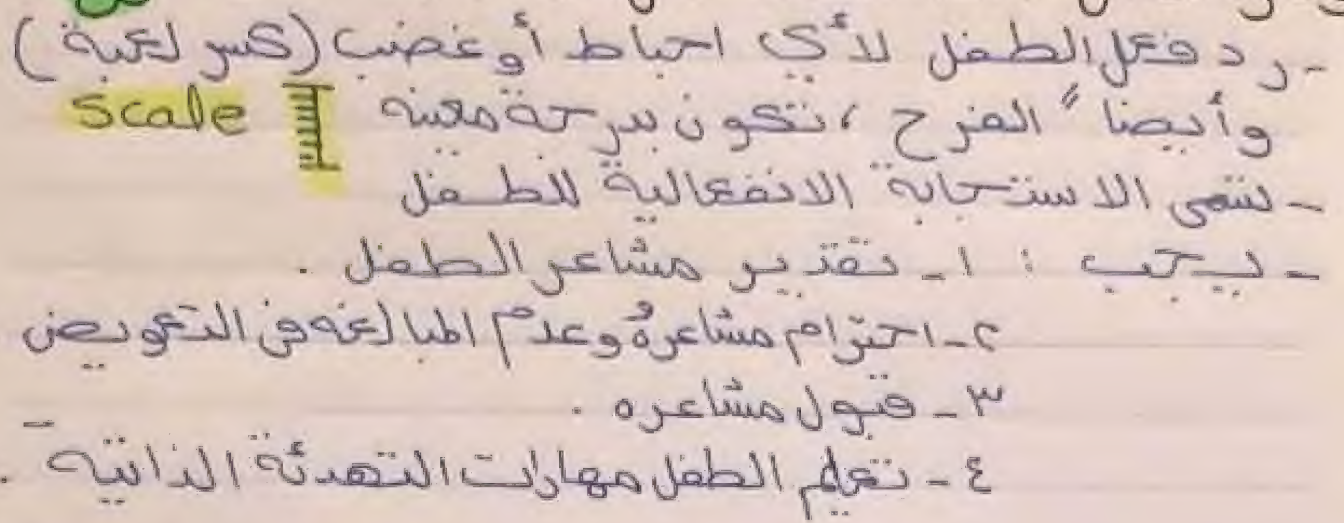 - رد فعل الطفل لأي احباط أو غضب (كسر لعبة)
وأيضاً الفرح ، تكون بدرجة معينه Scale
- تسمى الاستجابة الانفعالية للطفل
- يجب : ١- تقدير مشاعر الطفل .
٢- احترام مشاعره وعدم المبالغه في التعويض
٣- قبول مشاعره .
٤- تعليم الطفل مهارات التهدئة الذاتية .